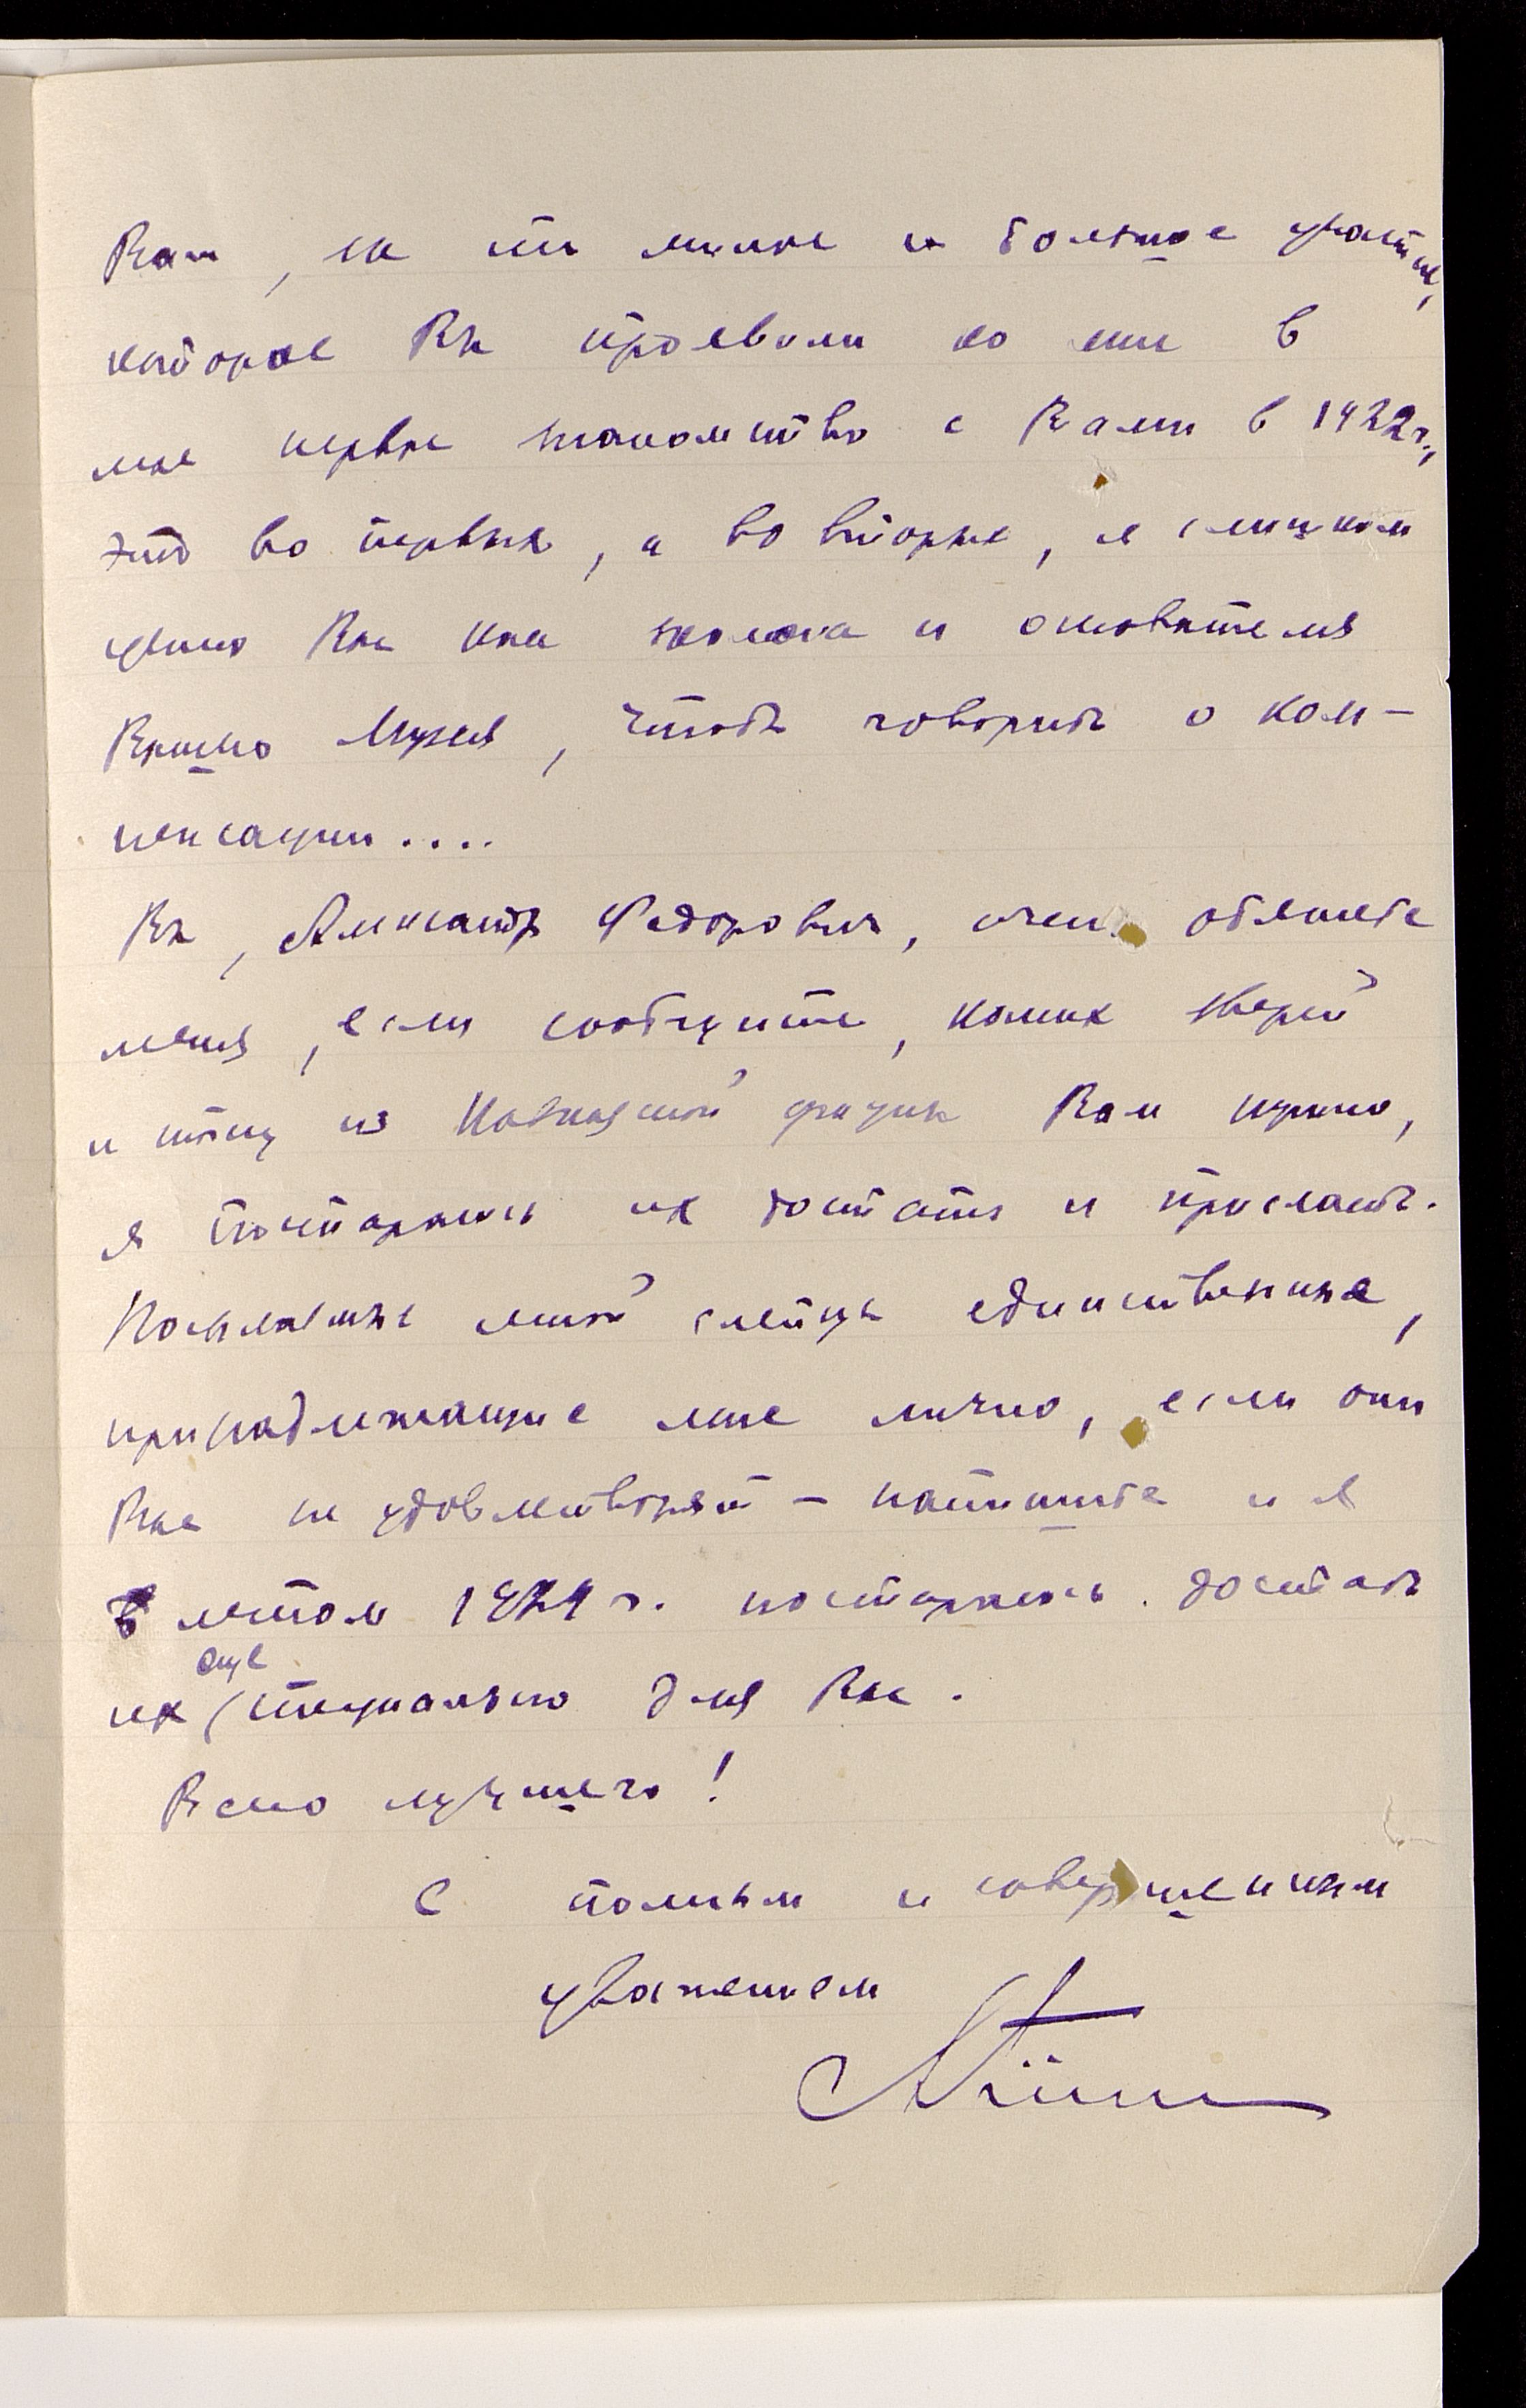 Вам, за то милое и большое участие,
которое Вы проявили ко мне в
мое первое знакомство с Вами в 1922 г.,
это во первых, а во вторых, я слишком
ценю Вас как зоолога и основателя
Вашего Музея, чтобы говорить о ком-
пенсации....
Вы, Александр Федорович, очень обяжете
меня, если сообщите, каких зверей
и птиц из Кавказской фауны Вам нужно,
я постараюсь их достать и прислать.
Посылаемые мной слепцы единственные,
принадлежащие мне лично, если они
Вас не удовлетворят – напишите и я
летом 1924 г. постараюсь достать
еще
их специально для Вас.
Всего лучшего!
С полным и совершенным
уважением